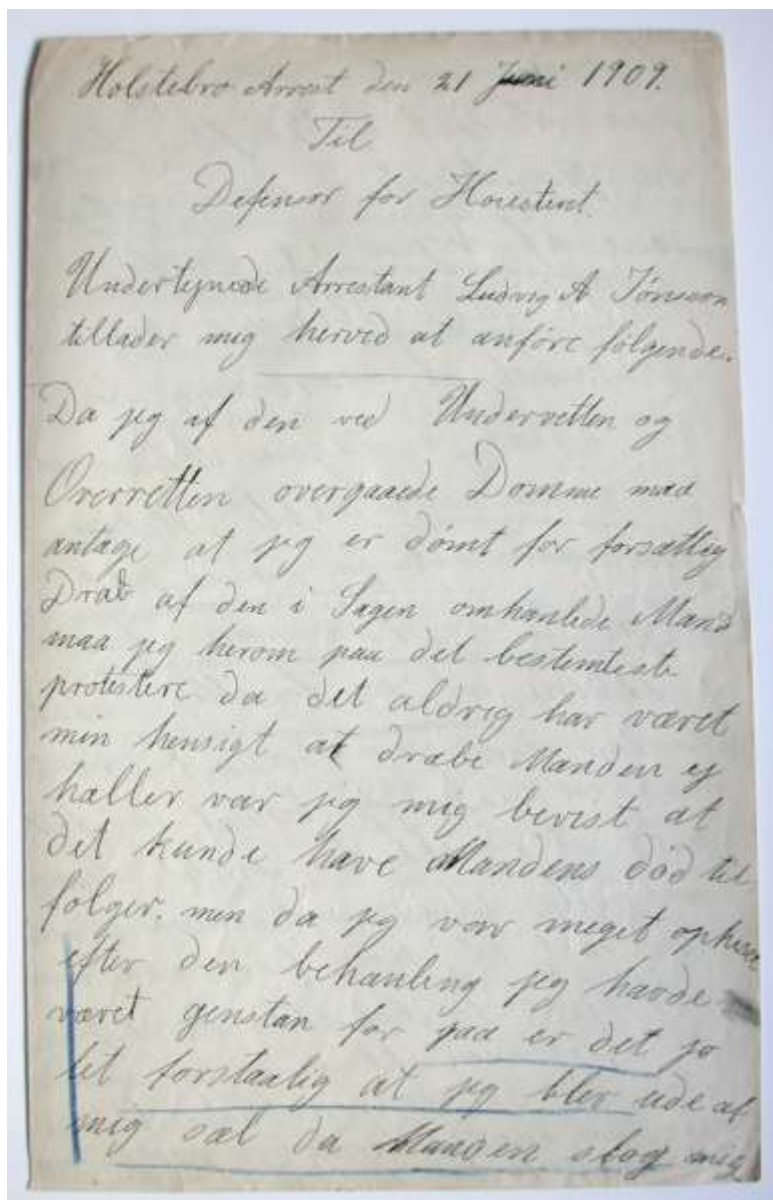 Holstebro Arrest den 21 Juni 1909.
Til
Defensor for Høiesteret.
Undertejnede Arrestant Ludvig A Jönsson
tillader mig herved at anføre følgende.
Da jeg af den ved Undervetten og
Overretten overgaaede Domme maa
antage at jeg er dømt for forsætlig
Drab af den i Sagen omhanlede Mand
maa jeg herom paa det bestemteste
protestere da det aldrig har været
min hensigt at dræbe Manden ej
hæller var jeg mig bevest at
det kunde have Mandens død til
følger. men da jeg var meget
efter den behanling jeg havde
været genstan for paa er det jo
let forstaalig at jeg blev ude af
mig sæl da Manden slog mig